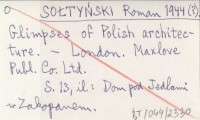 O SOŁTYŃSKI Roman 1944 (?)
Glimpses of Polish architec-
ture. - London. Maxlove
Publ. Co. Ltd.
S. 13, il.: Dom pod Jedlami
w Zakopanem.
KT/044/2330